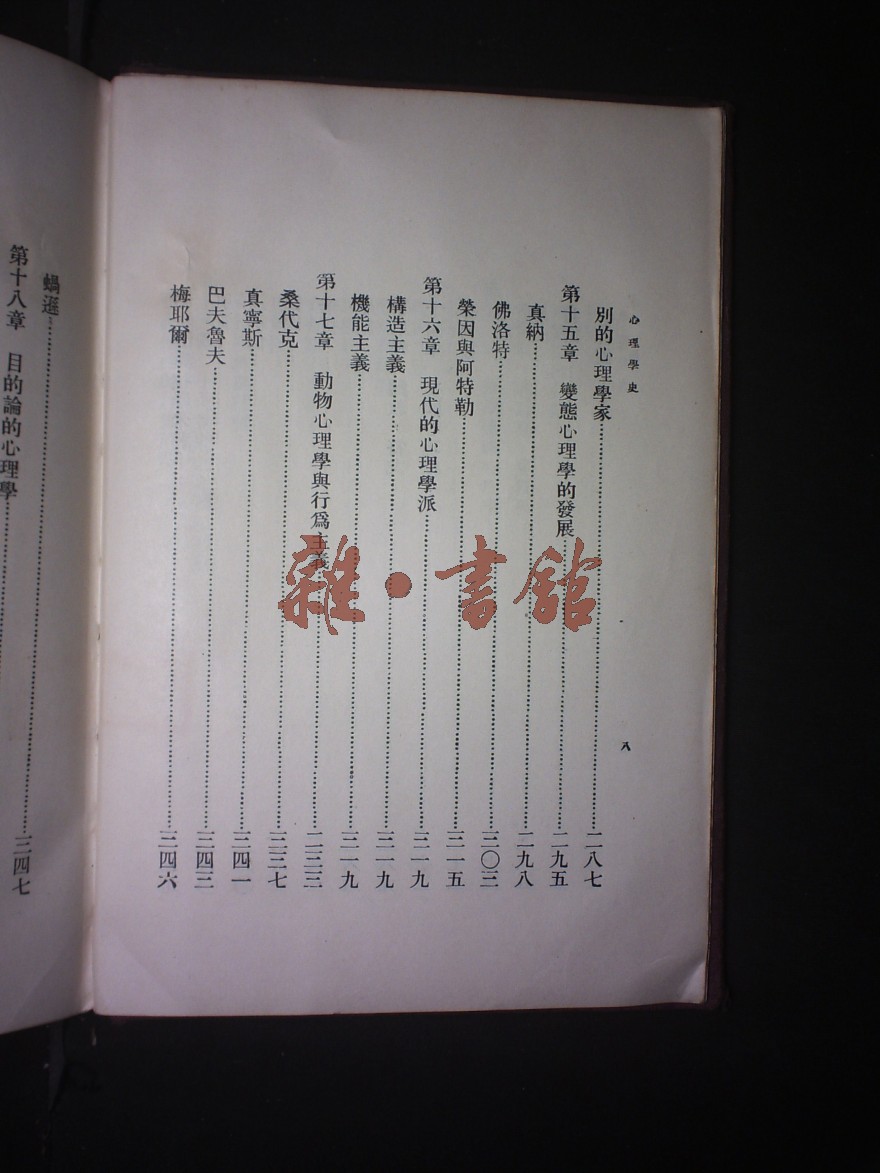 心理學史
八
別的心理學家……二八七
第十五章 變態心理學的發展……二九五
真納……二九八
佛洛特……三〇三
榮因與阿特勒……三一五
第十六章 現代的心理學派……三一九
構造主義……三一九
機能主義……三一九
第十七章 動物心理學與行爲主義……二三三
桑代克……三三七
真寧斯……三四一
巴夫魯夫……三四三
梅耶爾……三四六
蝸遜……三四七
第十八章 目的論的心理學……
雜·書館